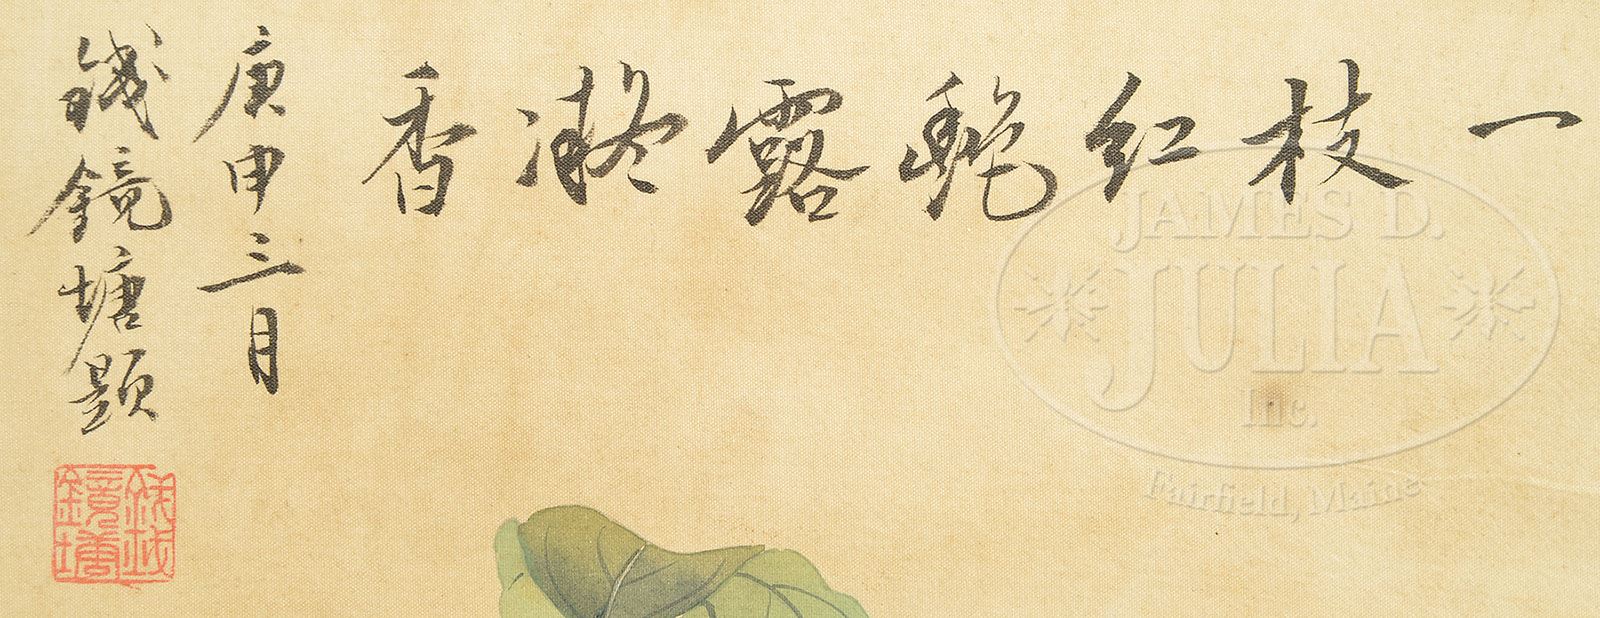 一枝红艷露凝香
庚申三月
錢鏡塘題
錢鏡塘
JAMES D.
JULIA
Inc.
Fairfield, Maine